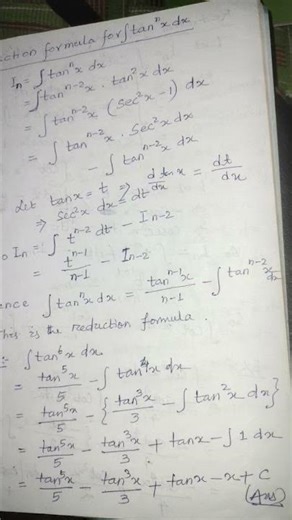 ction formula for ∫tanⁿx dx
Iₙ = ∫tanⁿx dx
= ∫tanⁿ⁻²x · tan²x dx
= ∫tanⁿ⁻²x · (sec²x − 1) dx
= ∫ tanⁿ⁻²x · sec²x dx
− ∫ tanⁿ⁻²x dx
Let tanx = t ⇒ d/dx tanx = dt/dx
⇒ sec²x dx = dt
o Iₙ = ∫ tⁿ⁻² dt − Iₙ₋₂
= tⁿ⁻¹/n-1 − Iₙ₋₂
ence ∫tanⁿx dx = tanⁿ⁻¹x/n-1 − ∫tanⁿ⁻²x dx
This is the reduction formula.
:- ∫tan⁶x dx
= tan⁵x/5 − ∫tan⁴x dx
= tan⁵x/5 − {tan³x/3 − ∫tan²x dx}
= tan⁵x/5 − tan³x/3 + tanx − ∫1 dx
= tan⁵x/5 − tan³x/3 + tanx − x + C
(Ans)